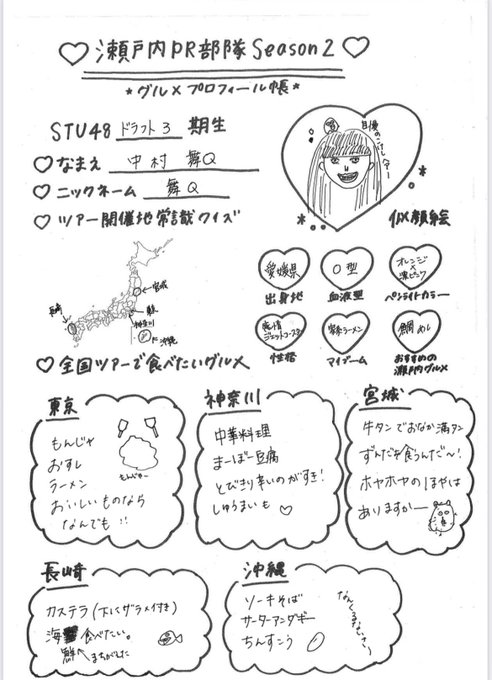 ♡ 瀬戸内PR部隊 Season2 ♡
*グルメプロフィール帳*
STU48 ドラフト3 期生
♡ なまえ 中村 舞Q
♡ ニックネーム 舞Q
♡ ツアー開催地常識クイズ
自慢の
ヘアー
似顔絵
長崎
宮城
東京
神奈川
沖縄
愛媛県
出身地
O型
血液型
オレンジ
×
ペンライトカラー
ジェットコースター
性格
ラーメン
マイブーム
鯛めし
おすすめの
瀬戸内グルメ
♡ 全国ツアーで食べたいグルメ
東京
もんじゃ
おすし
ラーメン
おいしいものなら
なんでも!!
もんじゃー
神奈川
中華料理
まーぼー豆腐
とびきり辛いのがすき!
しゅうまいも ♡
宮城
牛タンでおなか満タン
ずんだ食うんだ〜!
ホヤホヤのほやは
ありますかー
長崎
カステラ(下にザラメ付き)
海鮮食べたい。
まちがえた
沖縄
ソーキそば
サーターアンダギー
ちんすこう
なんくるないさ〜